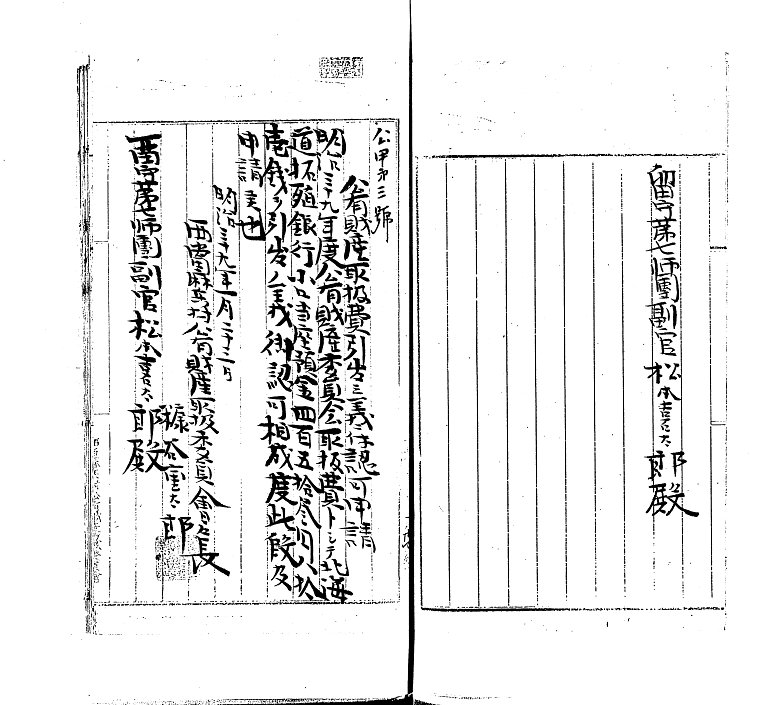 留守第七師團副官松本吉太郎殿
公甲第三號
公有財産取扱費引出之義ニ付認可申請
明治三十九年度公有財産委員会取扱費トシテ北海
道拓殖銀行小口当座預金四百五拾叁円八拾
壱銭ヲ引出ノ義御認可相成度此段及
申請候也
明治三十九年一月二十三日
公有財産取扱委員會々長
太郎
留守第七師團副官松本吉太郎殿